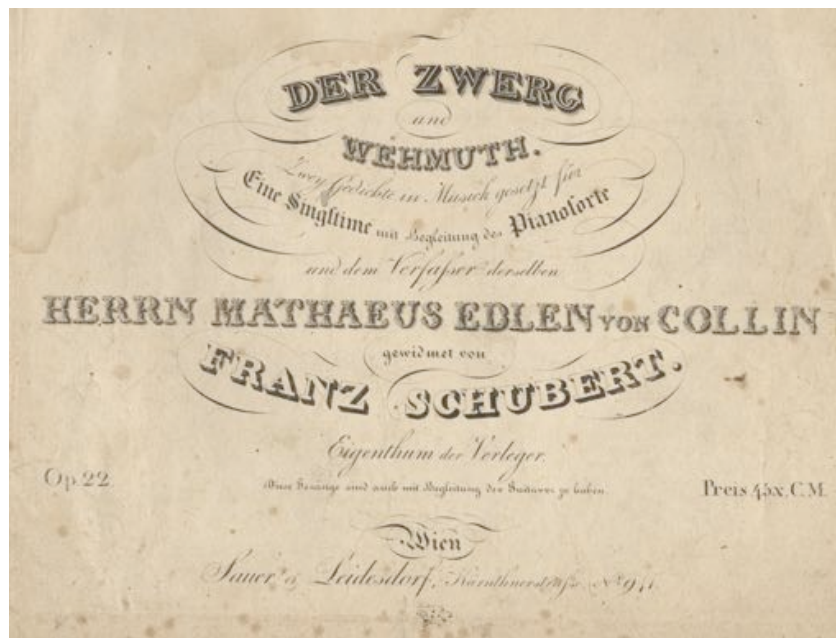 DER ZWERG
und
WEHMUTH.
Zwey Gedichte in Musick gesetzt für
Eine Singstime mit Begleitung des Pianoforte
und dem Verfasser derselben
HERRN MATHAEUS EDLEN VON COLLIN
gewidmet von
FRANZ SCHUBERT.
Eigenthum der Verleger.
Op. 22. Preis 45x. C.M.
Diese Gesänge sind auch mit Begleitung der Guitarre zu haben.
Wien
Sauer & Leidesdorf, Kärnthnerstrasse No 941